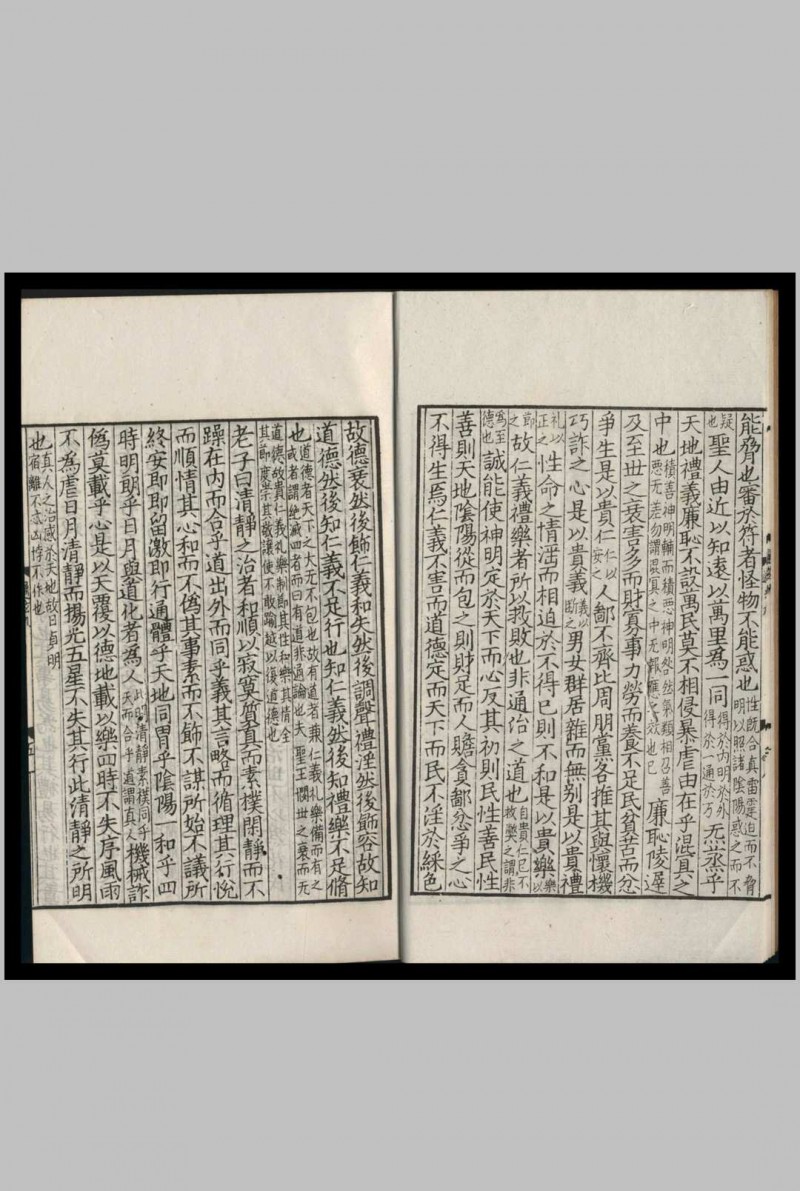 能脅也審於符者怪物不能惑也性旣合真雷霆迫而不脅明以照諸陰陽惑之而不
疑也聖人由近以知遠以萬里為一同得於內明於外得於一通於万炁蒸乎
天地禮義廉恥不設萬民莫不相侵暴虐由在乎混真之
中也積善神明輔而積悪神明咎災氣類相召善悪无差勿謂混真之中无報應之效也已廉恥陵遲
及至世之衰害多而財寡事力勞而養不足民貧苦而忿
爭生是以貴仁仁以安之人鄙不齊比周朋黨各推其與懷機
巧詐之心是以貴義義以斷之男女群居雜而無别是以貴禮
礼以正之性命之情淫而相迫於不得已則不和是以貴樂樂以
節之故仁義禮樂者所以救敗也非通治之道也自貴仁已下救樂之謂非
為至德也誠能使神明定於天下而心反其初則民性善民性
善則天地陰陽從而包之則財足而人贍貪鄙忿爭之心
不得生焉仁義不害而道德定而天下而民不淫於綵色
故德衰然後飾仁義和失然後調聲禮淫然後飾容故知
道德然後知仁義不足行也知仁義然後知禮樂不足脩
也道德者天下之大无不包也故有道者兼仁義礼樂備而有之或者謂絶滅四者而曰有道非通論也夫聖王憫世之衰而无
道德故貴仁義礼樂制節其性和樂其情全其節度崇其敬讓使不敢踰越以復道德也
老子曰清靜之治者和順以寂寞質真而素樸閑靜而不
躁在內而合乎道出外而同乎義其言略而循理其行悅
而順情其心和而不偽其事素而不飾不謀所始不議所
終安即即留激即行通體乎天地同胃乎陰陽一和乎四
時明朗乎日月與道化者為人此明清靜素樸同乎天而合乎道謂真人機械詐
偽莫載乎心是以天覆以德地載以樂四時不失序風雨
不為虐日月清靜而揚光五星不失其行此清靜之所明
也真人之治感於天地故日貞明宿離不忒凶悖不作也